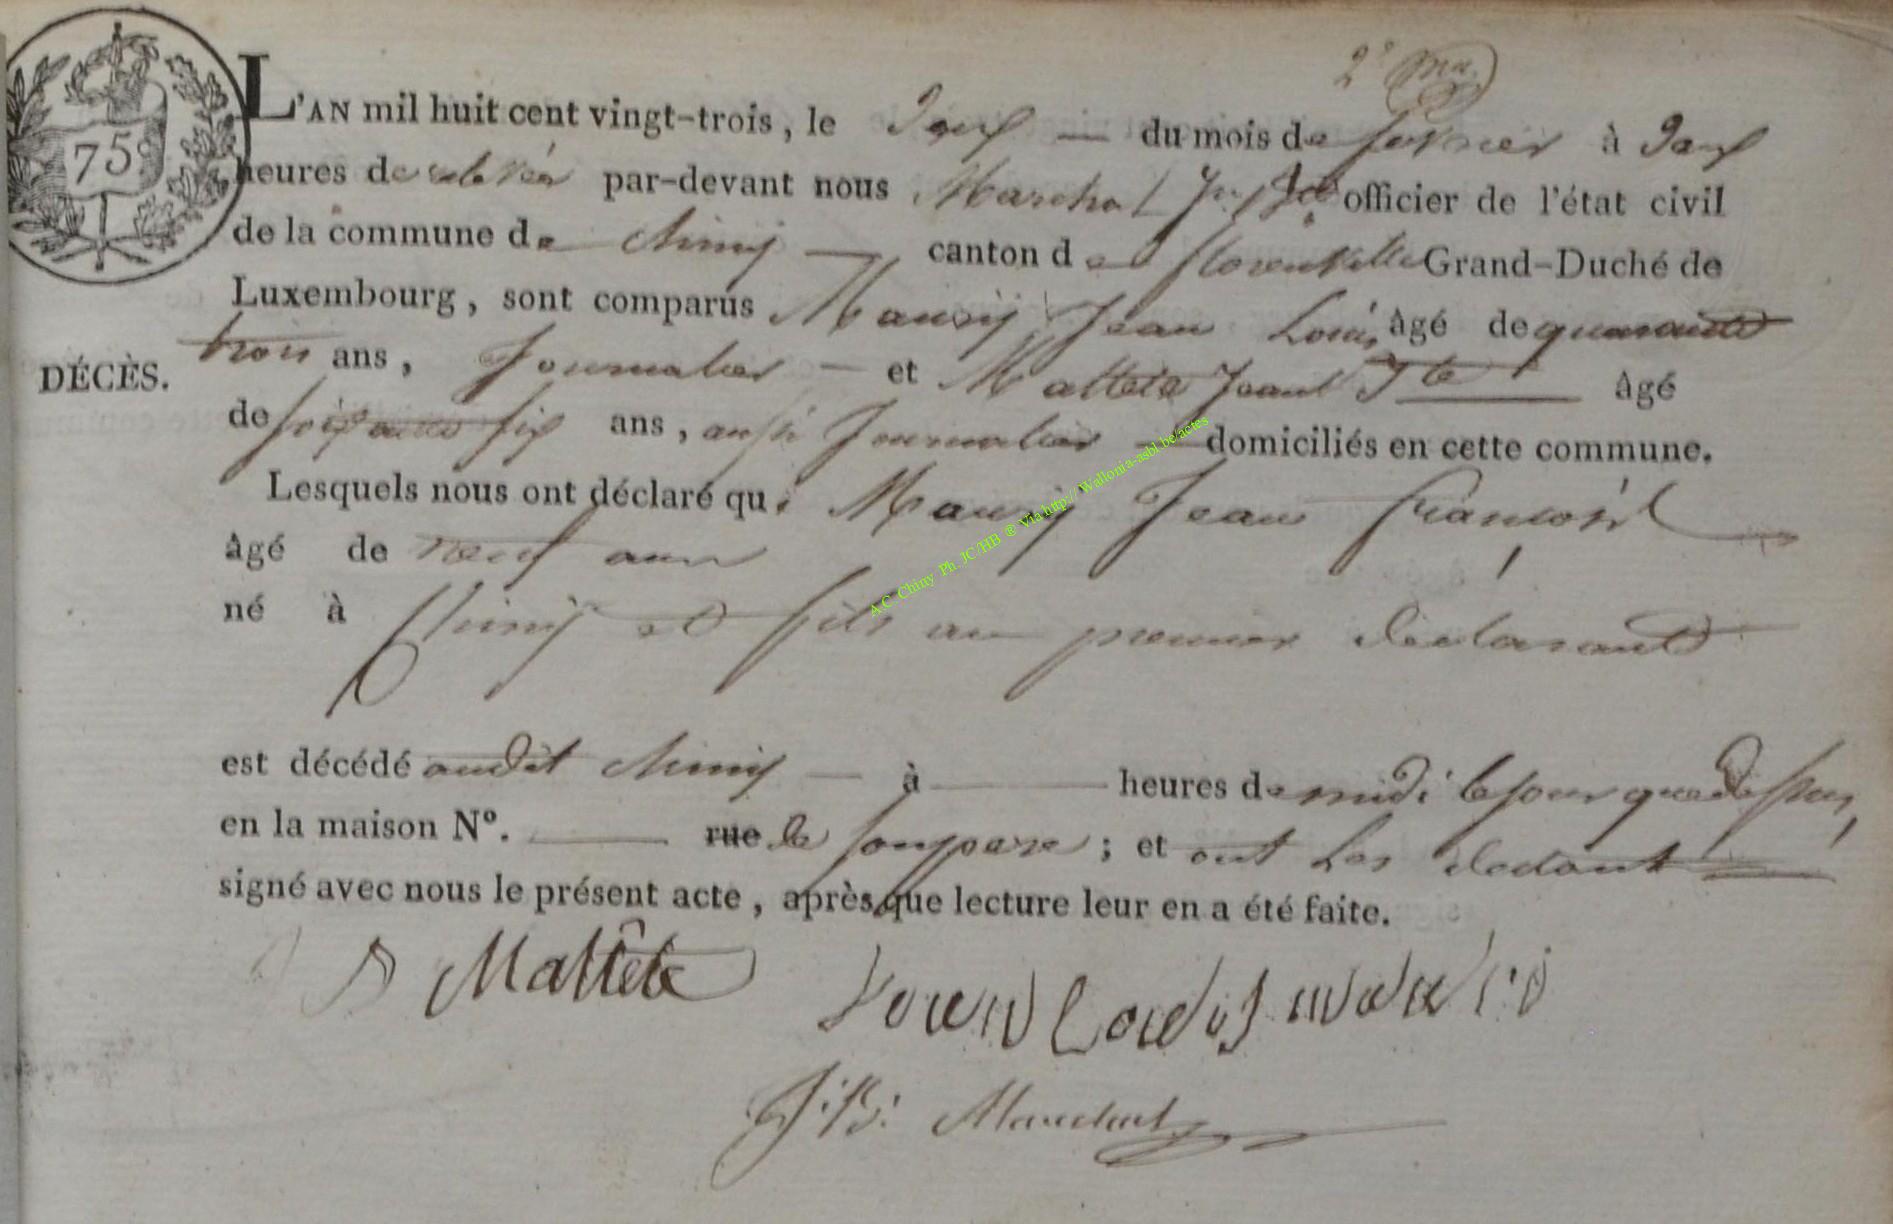 75c
L'AN mil huit cent vingt-trois, le deux — du mois de fevrier à deux
heures de relevée par-devant nous Marchal officier de l'état civil
de la commune de Chiny — canton de florenville Grand-Duché de
Luxembourg, sont comparus Maury Jean Louis, âgé de quarante
trois ans, Journalier — et Mattete Jean Bte âgé
DÉCÈS.
de soixante six ans, aussi Journalier — domiciliés en cette commune.
Lesquels nous ont déclaré que Maury Jean françois
âgé de neuf ans
né à Chiny et fils au premier declarant
est décédé audit Chiny — à — heures de midi le jour que dessus,
en la maison N°. — rue de son pere ; et ont les
signé avec nous le présent acte, après que lecture leur en a été faite.
Mattête
Louis
J: B: Marchal
A.C Chiny Ph. JC/HB ® Via http:// Wallonia-asbl.be/actes